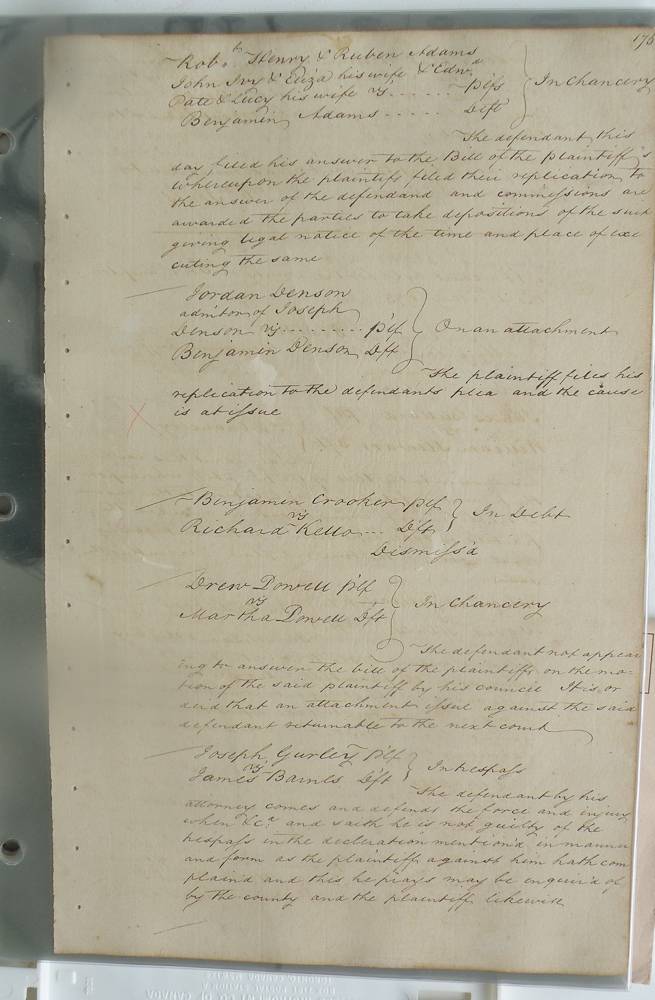 175
Robt. Henry & Ruben Adams
John Ivy & Eliza his wife & Edwd
Pate & Lucy his wife vs ...... plfs } In Chancery
Benjamin Adams ..... Deft
The defendant this
day filed his answer to the Bill of the plaintiff's
whereupon the plaintiffs filed their replication to
the answer of the defendand and commissions are
awarded the parties to take depositions of the suit
giving legal notice of the time and place of exe
cuting the same
Jordan Denson
admitor of Joseph
Denson vs ......... plf } On an attachment
Benjamin Denson Dft
The plaintiff files his
replication to the defendants plea and the cause
is at issue
Benjamen Crooker plf } In Debt
vs
Richard Kello ... Dft
Dismiss'd
Drew Powell plf } In Chancery
vs
Martha Powell Dft
The defendant not appear
ing to answer the bill of the plaintiffs on the mo-
tion of the said plaintiff by his councel It is or
derd that an attachment issue against the said
defendant returnable to the next court
Joseph Gurley plf } In trespass
vs
James Barnes Dft
The defendant by his
attorney comes and defends the force and injury
when &ca and saith he is not guilty of the
trespass in the decleration mention'd in manner
and form as the plaintiffs against him hath com
plain'd and this he prays may be enquir'd of
by the county and the plaintiff likewise